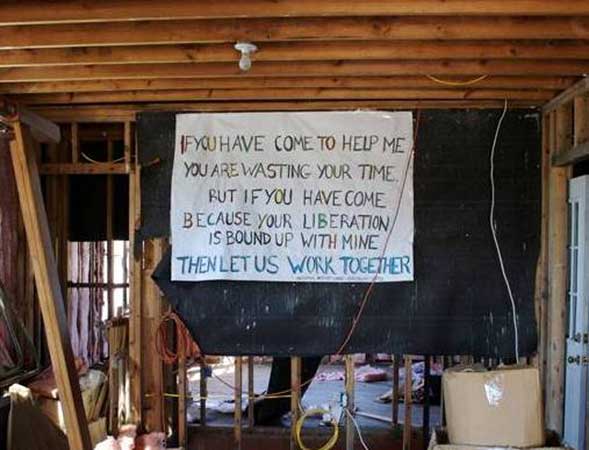 IF YOU HAVE COME TO HELP ME
YOU ARE WASTING YOUR TIME.
BUT IF YOU HAVE COME
BECAUSE YOUR LIBERATION
IS BOUND UP WITH MINE
THEN LET US WORK TOGETHER